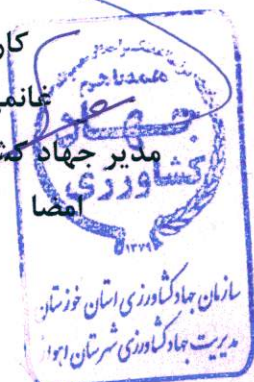 کار
غانمی
مدیر جهاد کش
امضا
جهاد
کشاورزی
۱۳۷۹
سازمان جهاد کشاورزی استان خوزستان
مدیریت جهاد کشاورزی شهرستان اهواز